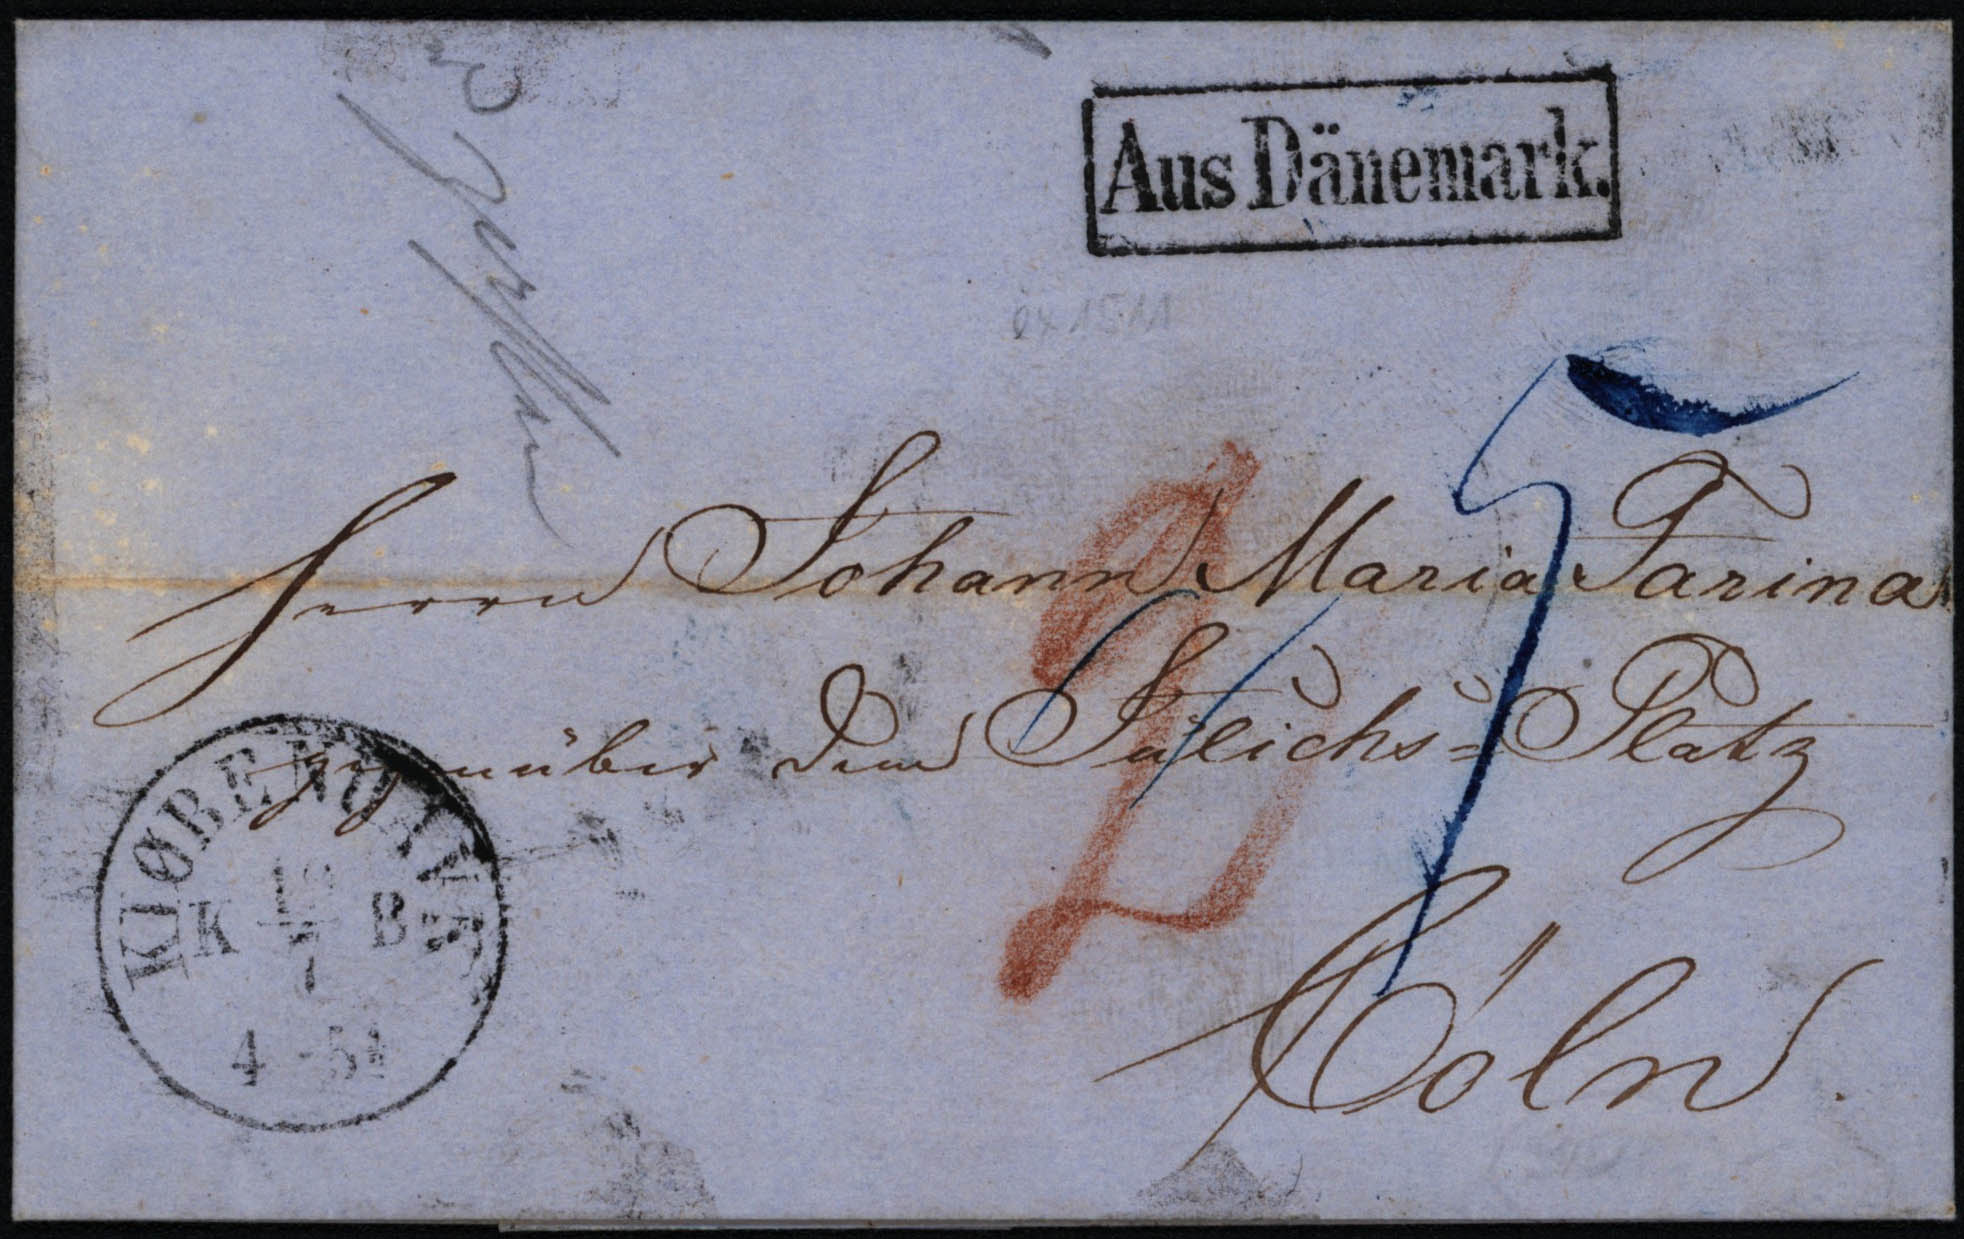 Aus Dänemark.
Herrn Johann Maria Farina
gegenüber dem Jülichs=Platz
Cöln.
KIØBENHAVN
K B
7
4 -51
2
5